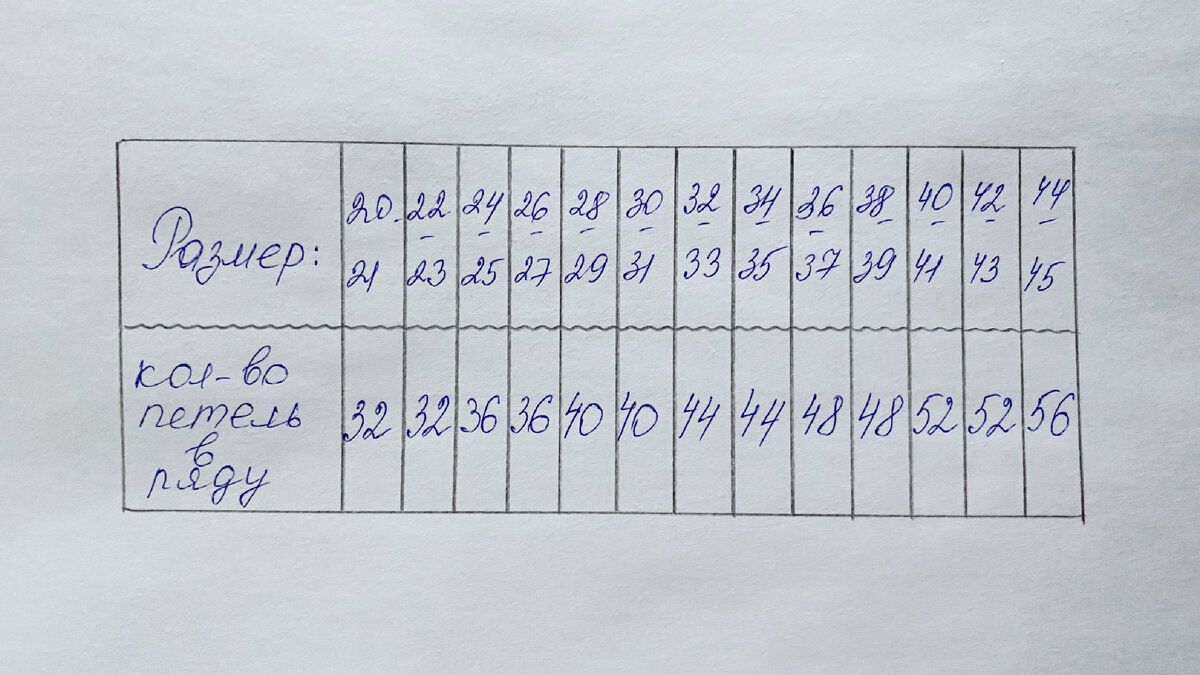 Размер: 20- 22 24 26 28 30 32 34 36 38 40 42 44
- - - - - - - - - - - -
21 23 25 27 29 31 33 35 37 39 41 43 45
кол-во
петель
в
ряду
32 32 36 36 40 40 44 44 48 48 52 52 56